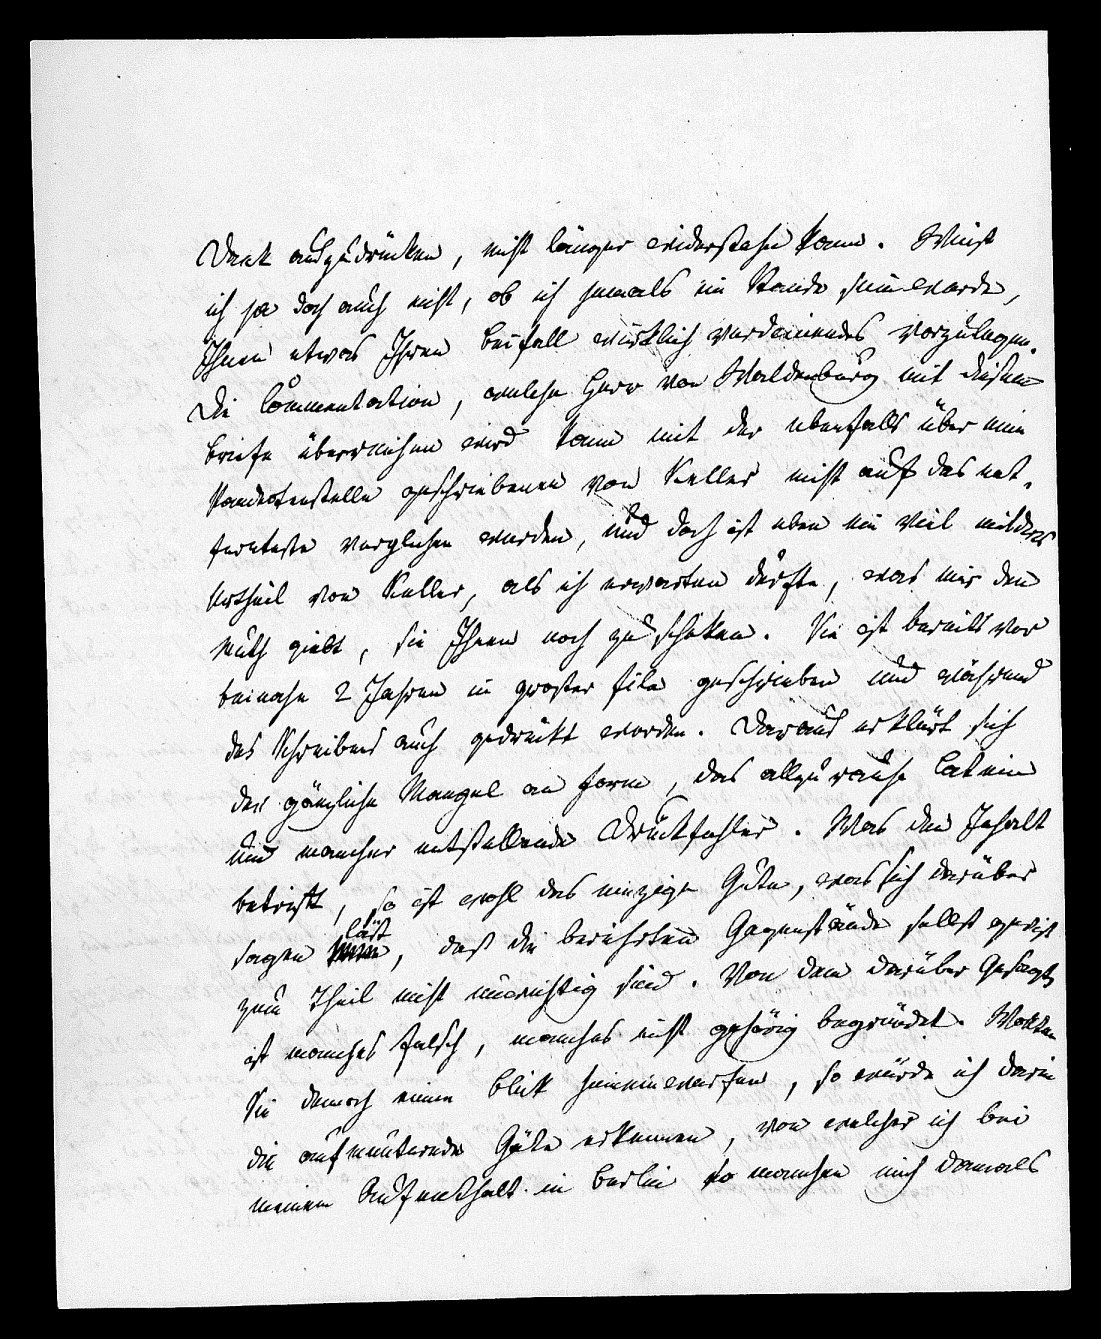 Dank auszudrücken, nicht länger widerstehen kann. Weiß
ich ja doch auch nicht, ob ich jemals im Stande sein werde,
Ihnen etwas Ihren Beifall wirklich verdienendes vorzulegen.
Die Commentation, welche Herr von Waldenburg mit diesem
Briefe überreichen wird kann mit der ebenfalls über eine
Pandectenstelle geschriebenen von Keller nicht auf das ent-
fernteste verglichen werden, und doch ist eben ein viel milderes
Urtheil von Keller, als ich erwarten durfte, was mir den
Muth giebt, sie Ihnen noch zu schicken. Sie ist bereits vor
beinahe 2 Jahren in groster Eile geschrieben und während
des Schreibens auch gedruckt worden. Daraus erklärt sich
der gänzliche Mangel an Form, das allzu rauhe Latein
und mancher entstellende Druckfehler. Was den Inhalt
betrifft, so ist wohl das einzige Gute, was sich darüber
sagen läst, das die berührten Gegenstände selbst gewiß
zum Theil nicht unwichtig sind. Von dem darüber Gesagten
ist manches falsch, manches nicht gehörig begründet. Wollten
Sie dennoch einen Blick hineinwerfen, so würde ich darin
die aufmunternde Güte erkennen, von welcher ich bei
meinem Aufenthalt in Berlin so manchen mich damals